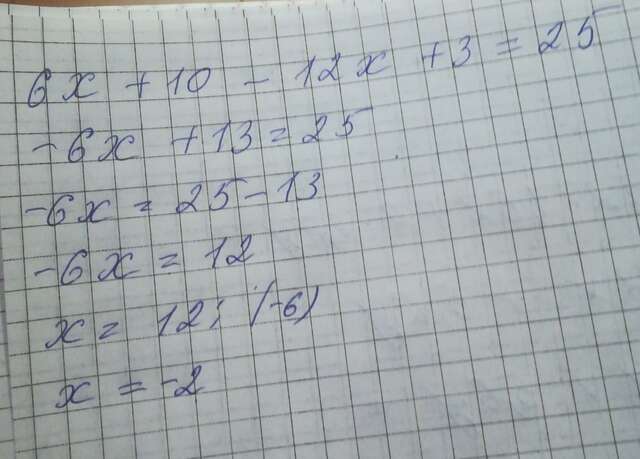 6x + 10 - 12x + 3 = 25
-6x + 13 = 25
-6x = 25 - 13
-6x = 12
x = 12 : (-6)
x = -2